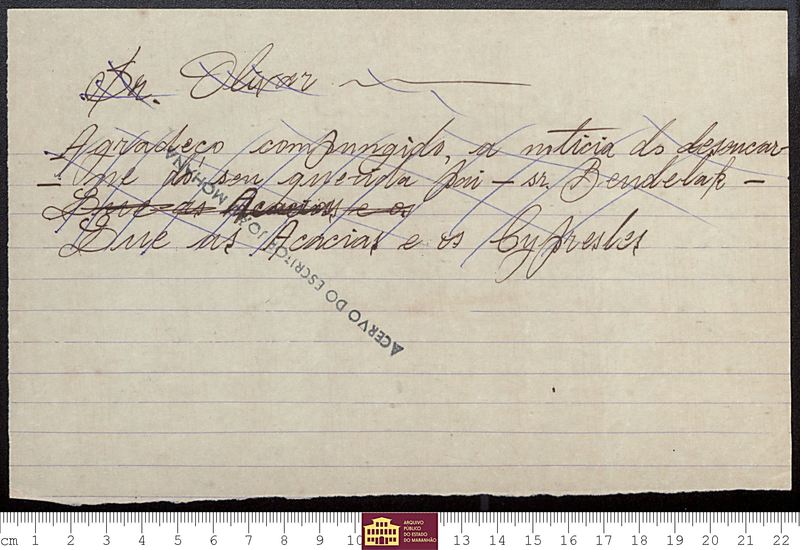 Sr. Olivar
Agradeço compungido, a notícia do desencar-
ne do seu querida pai - sr. Bendelak -
Que as Acacias e os
Que as Acácias e os Cyprestes
ACERVO DO ESCRITOR
MOHANA
cm 1 2 3 4 5 6 7 8 9 10 13 14 15 16 17 18 19 20 21 22
ARQUIVO
PÚBLICO
DO ESTADO
DO MARANHÃO